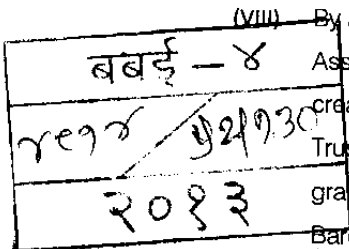 (VIII) By
बबई – ४
४९१४ /
२०१३
Ass
crea
Tru
gra
Bar